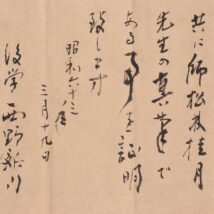 共に師松林桂月
先生の真筆で
ある事を証明
致します
昭和六十三年
三月十九日
後学 西野新川